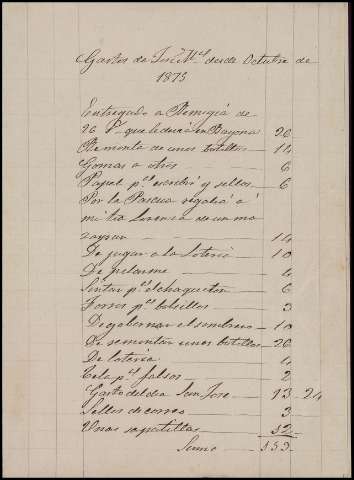 Gastos de José Mª desde Octubre de
1873
Entregado a Remigia de
26 que le dieron en Bayona 26
Remonta de unos botillos 14
Gomas a otros 6
Papel pª escribir y sellos 6
Por la Pascua regalé á
mi tia Lorenza de un ma
zapan 14
De jugar a la loteria 10
De pelarme 4
Cintas pª el chaqueton 6
Forros pª bolsillos 3
De gobernar el sombrero 10
De remontar unos botillos 26
De loteria 4
Tela pª falsos 2
Gasto del dia San José 13 24
Sellos de correo 3
Unas zapatillas 32
Suma